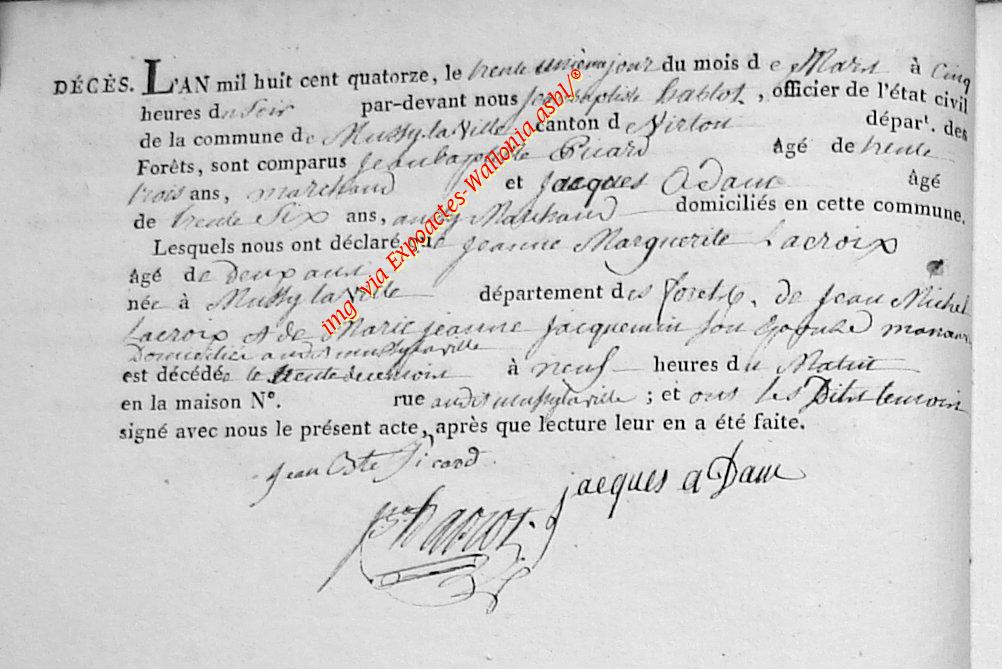 DÉCÈS. L'AN mil huit cent quatorze, le trente unième jour du mois de Mars à Cinq
heures du Soir par-devant nous Jean baptiste hablot, officier de l'état civil
de la commune de Mussy la Ville canton de Virton départ. des
Forêts, sont comparus Jean baptiste Picard âgé de trente
trois ans, marchand et Jacques Adam âgé
de trente Six ans, aussy Marchand domiciliés en cette commune.
Lesquels nous ont déclaré que Jeanne Marguerite Lacroix
âgé de deux ans
née à Mussy la Ville département des forets, de Jean Michel
Lacroix et de Marie jeanne jacquemin son Epouse
Domiciliés audit mussylaville
est décédée le trente de ce mois à neuf heures du Matin
en la maison N°. rue audit mussylaville ; et ont les Dits temoins
signé avec nous le présent acte, après que lecture leur en a été faite.
jean Bte Picard
jacques aDam
hablot
img via Expoactes-Wallonia.asbl/©